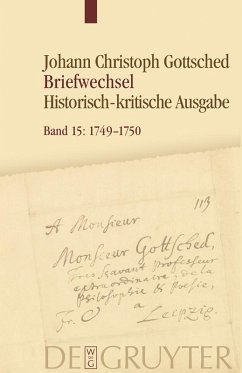 Johann Christoph Gottsched
Briefwechsel
Historisch-kritische Ausgabe
Band 15: 1749–1750
113
A Monsieur
Monsieur Gottsched,
Tres savant Professeur
extraordinaire de la
Philosophie & Poesie,
Fr.
a
Leipzig.
DE GRUYTER
W
DE
G